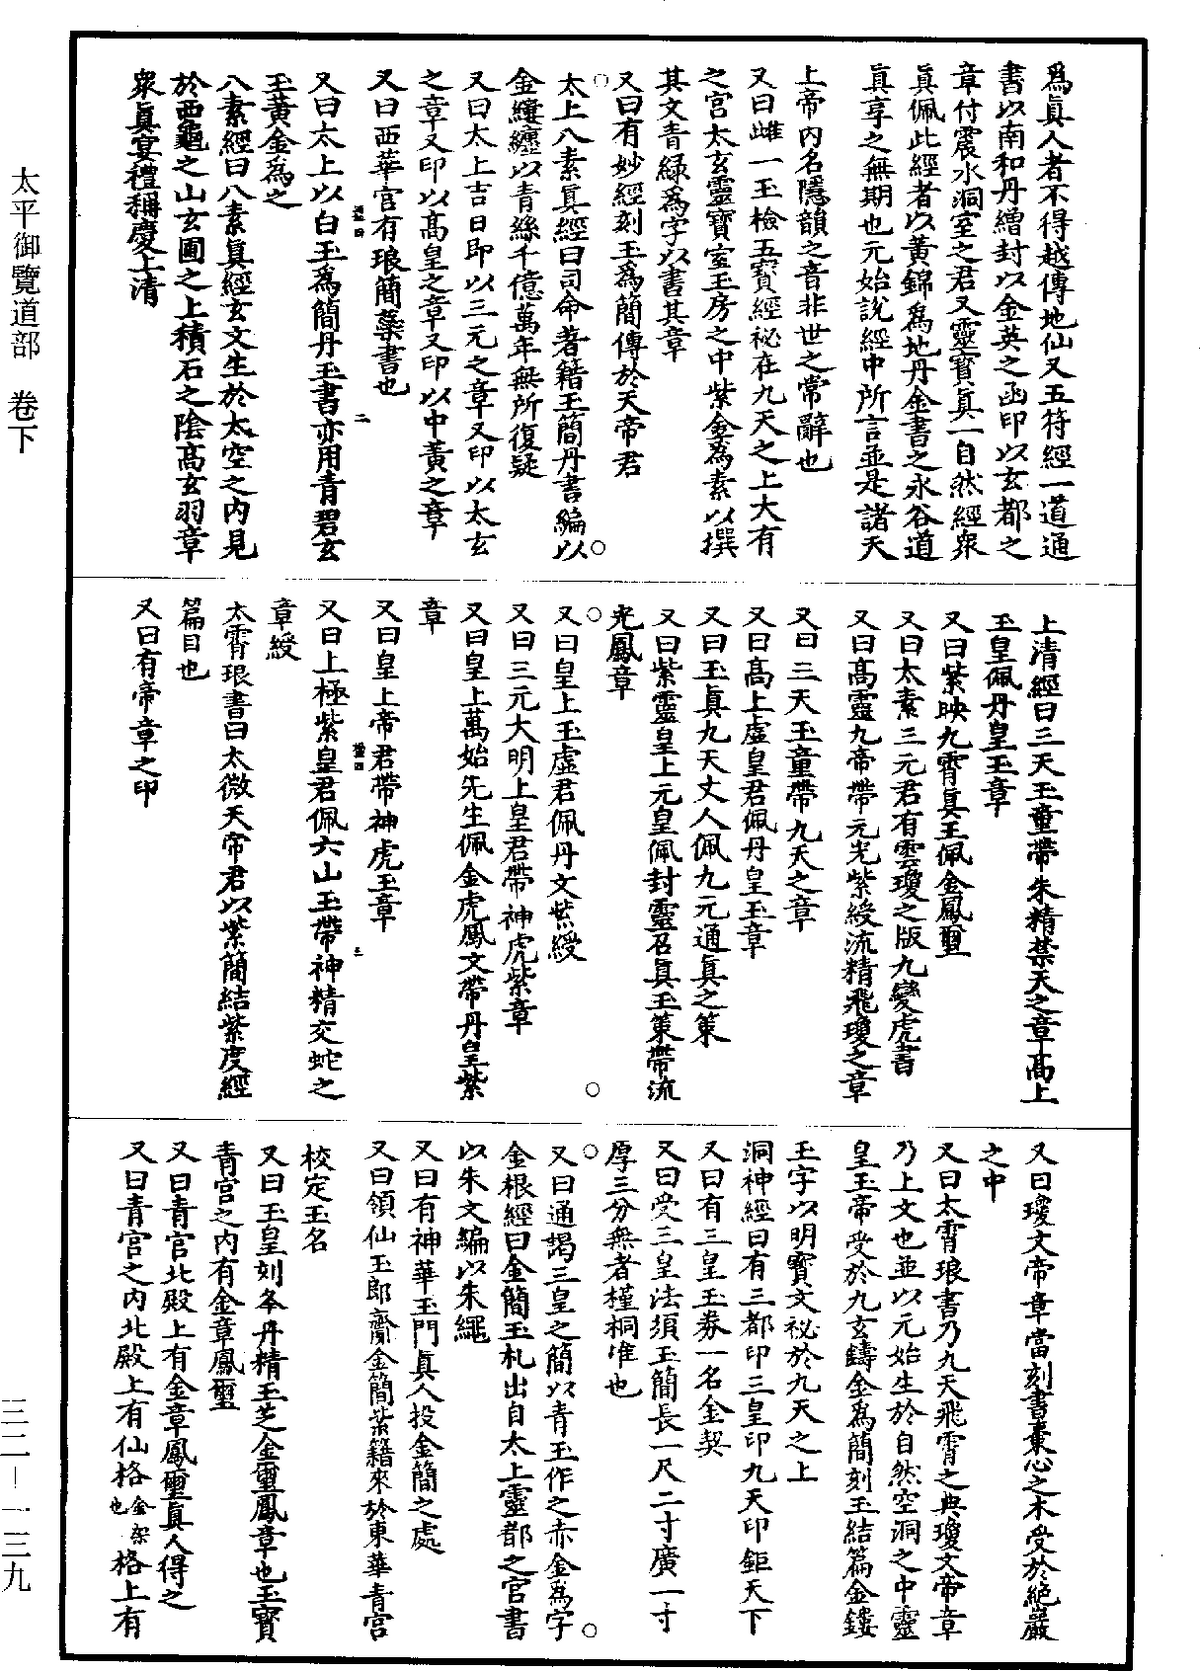 太平御覽道部　卷下
三二—一三九
爲眞人者不得越傳地仙又五符經一道通
書以南和丹繒封以金英之函印以玄都之
章付震水洞室之君又靈寶眞一自然經衆
眞佩此經者以黃錦爲地丹金書之永谷道
眞享之無期也元始說經中所言並是諸天
上帝內名隱韻之音非世之常辭也
又曰雌一玉檢五寶經祕在九天之上大有
之宮太玄靈寶室玉房之中紫金爲素以撰
其文青綠爲字以書其章
又曰有妙經刻玉爲簡傳於天帝君
太上八素眞經曰司命著籍玉簡丹書編以
金縷纏以青絲千億萬年無所復疑
又曰太上吉日即以三元之章又印以太玄
之章又印以高皇之章又印以中黃之章
又曰西華宮有琅簡蘂書也
二
又曰太上以白玉爲簡丹玉書亦用青碧玄
玉黃金爲之
八素經曰八素眞經玄文生於太空之內見
於西龜之山玄圃之上積石之陰高玄羽章
衆眞宴禮稱慶上清
上清經曰三天玉童帶朱精禁天之章高上
玉皇佩丹皇玉章
又曰紫映九霄眞王佩金鳳璽
又曰太素三元君有雲瓊之版九變虎書
又曰高靈九帝帶元光紫綬流精飛瓊之章
又曰三天玉童帶九天之章
又曰高上虛皇君佩丹皇玉章
又曰玉眞九天丈人佩九元通眞之策
又曰紫靈皇上元皇佩封靈召眞玉策帶流
光鳳章
又曰皇上玉虛君佩丹文紫綬
又曰三元大明上皇君帶神虎紫章
又曰皇上萬始先生佩金虎鳳文帶丹皇紫
章
又曰皇上帝君帶神虎玉章
三
又曰上極紫皇君佩六山玉帶神精交蛇之
章綬
太霄琅書曰太微天帝君以紫簡結紫度經
篇目也
又曰有帝章之印
又曰瓊文帝章當刻書棗心之木受於絕巖
之中
又曰太霄琅書乃九天飛霄之典瓊文帝章
乃上文也並以元始生於自然空洞之中靈
皇玉帝受於九玄鑄金爲簡刻玉結篇金鏤
玉字以明寶文祕於九天之上
洞神經曰有三都印三皇印九天印鉅天下
又曰有三皇玉券一名金契
又曰受三皇法須玉簡長一尺二寸廣一寸
厚三分無者槿桐准也
又曰通謁三皇之簡以青玉作之赤金爲字
金根經曰金簡玉札出自太上靈都之宮書
以朱文編以朱繩
又曰有神華玉門眞人投金簡之處
又曰領仙玉郎齎金簡紫籍來於東華青宮
校定玉名
又曰玉皇刻夅丹精玉芝金璽鳳章也玉寶
青宮之內有金章鳳璽
又曰青宮北殿上有金章鳳璽眞人得之
又曰青宮之內北殿上有仙格金架也格上有